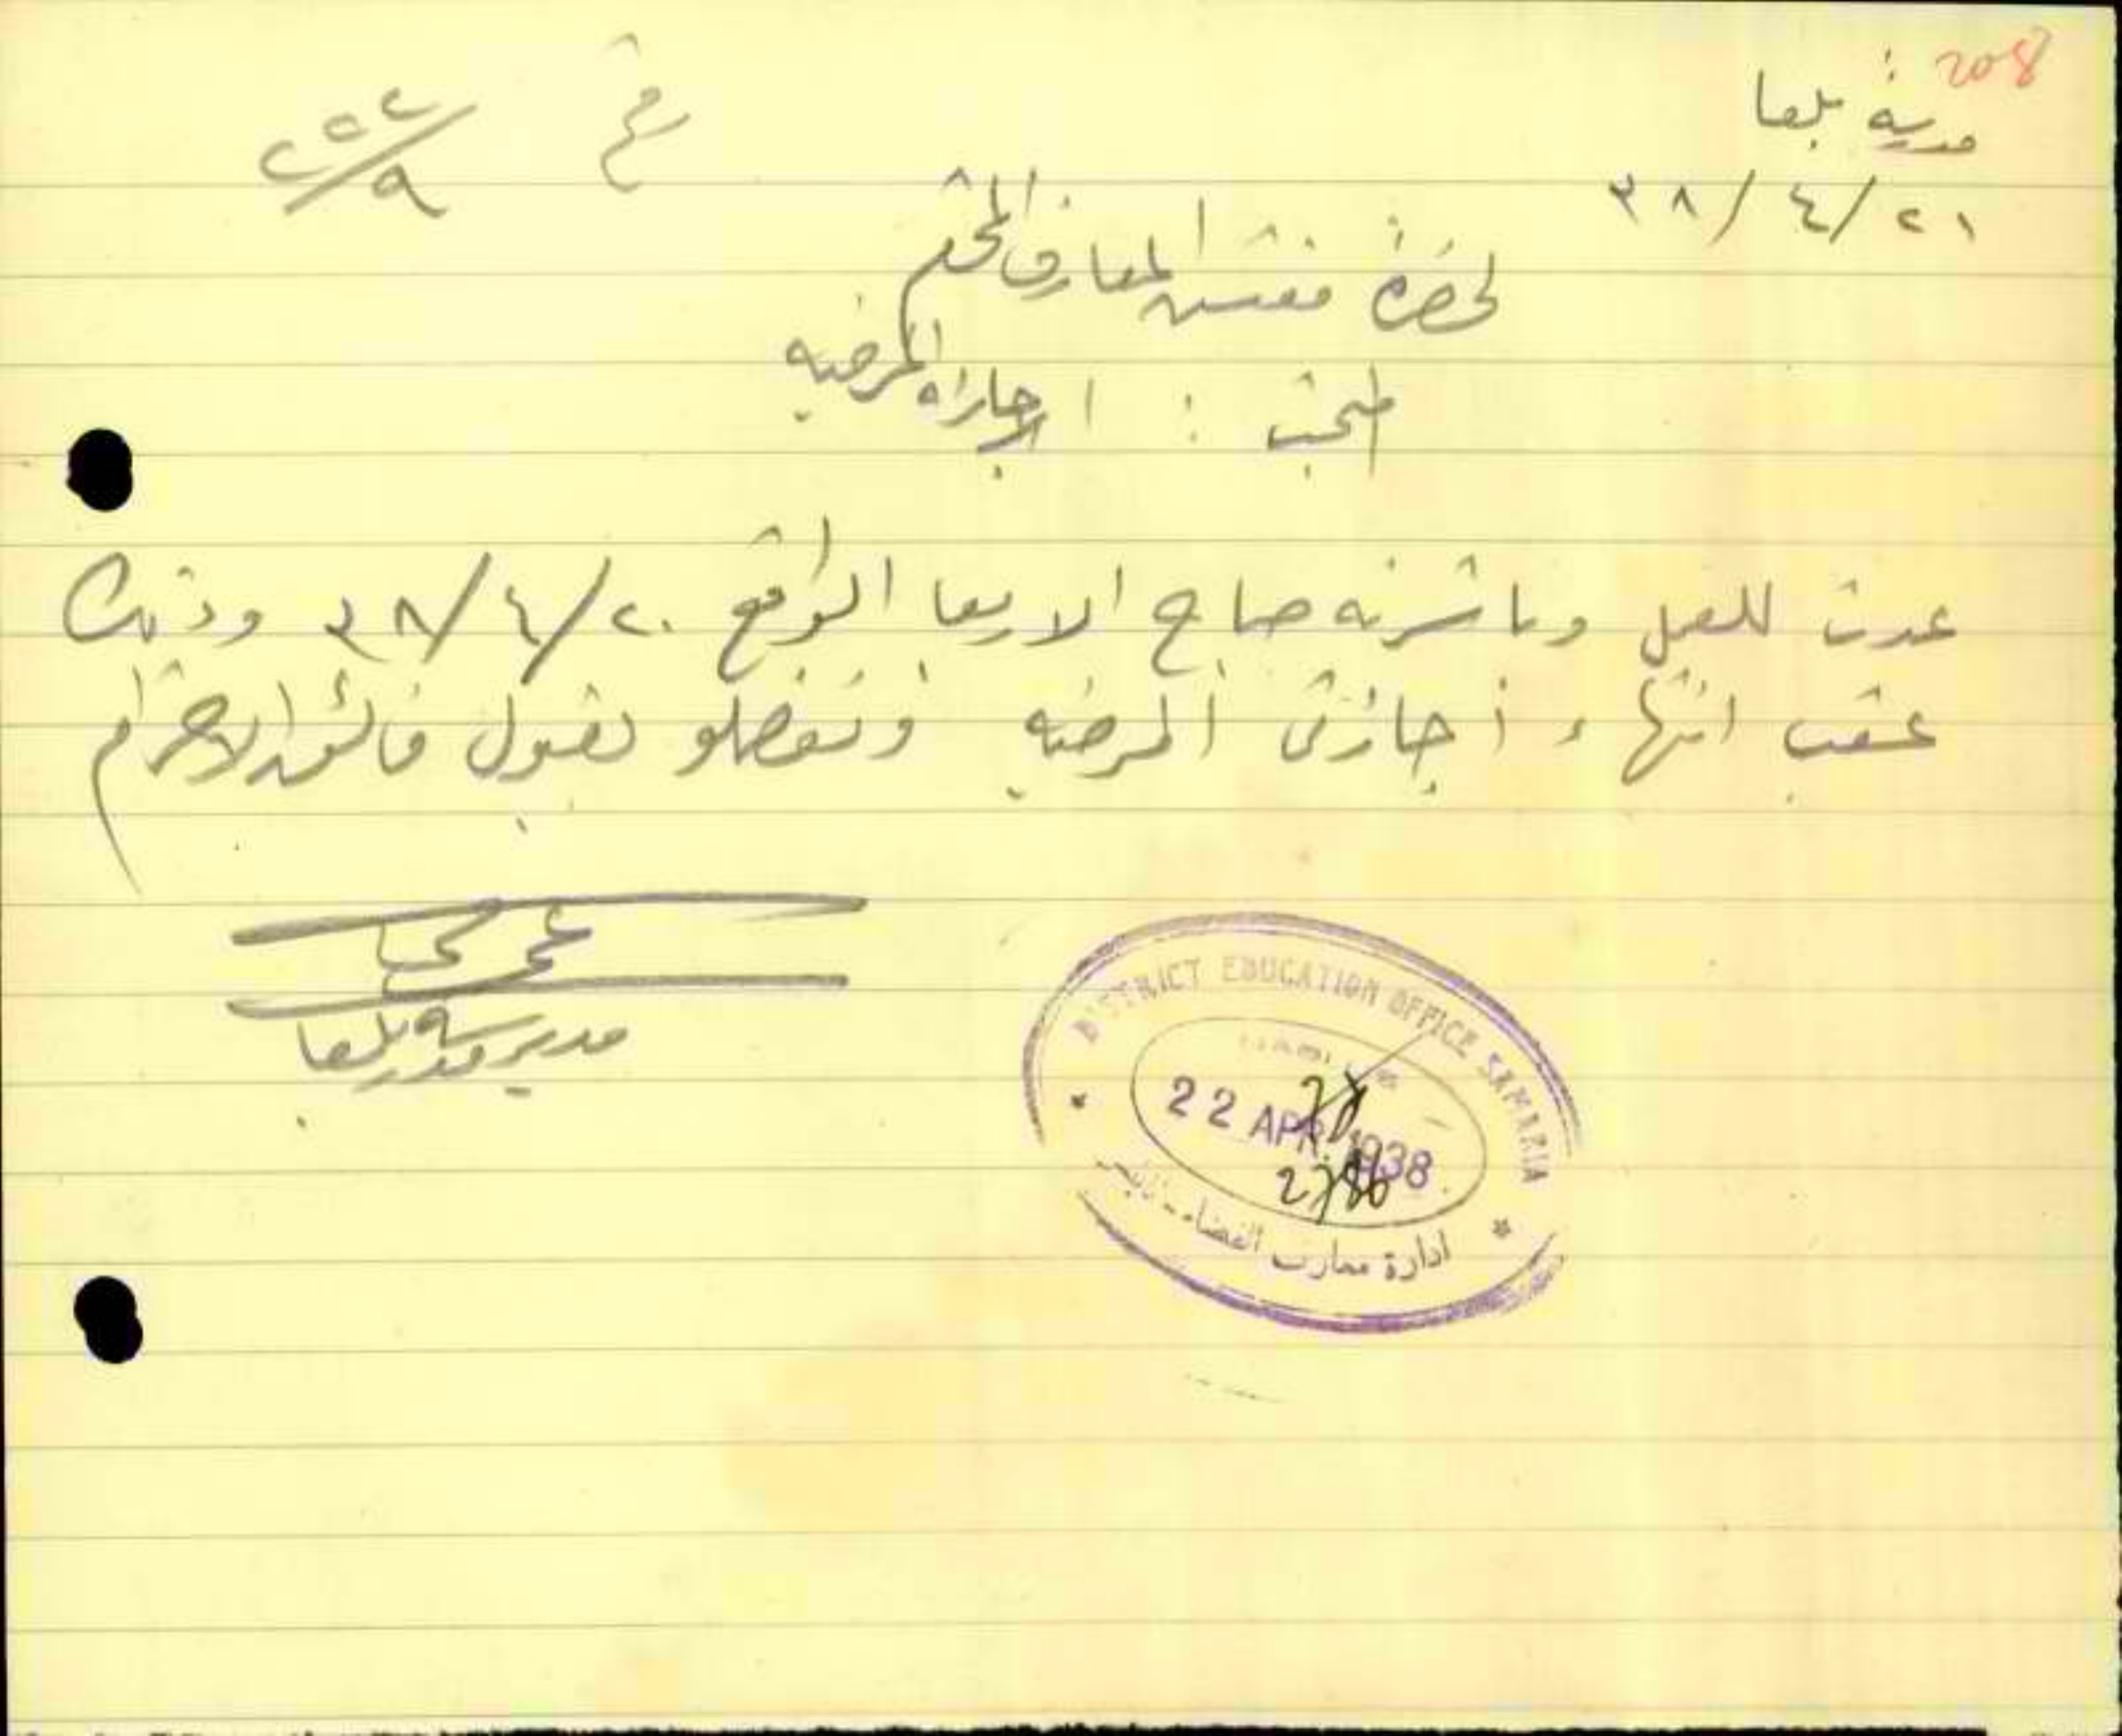 208
مدرسة بلعا
٢١/٤/٣٨
رقم
٩/٢٥٢
لحضرة مفتش المعارف المحترم
المبحث : الاجازات المرضيه
عدت للعمل وباشرته صباح الاربعا الواقع ٢٠/٤/٣٨ وذلك
عقب انتهاء اجازتي المرضيه وتفضلو بقبول فائق الاحترام
مدير مدرسة بلعا
DISTRICT EDUCATION OFFICE SAMARIA
22 APR. 1938
ادارة معارف القضاء